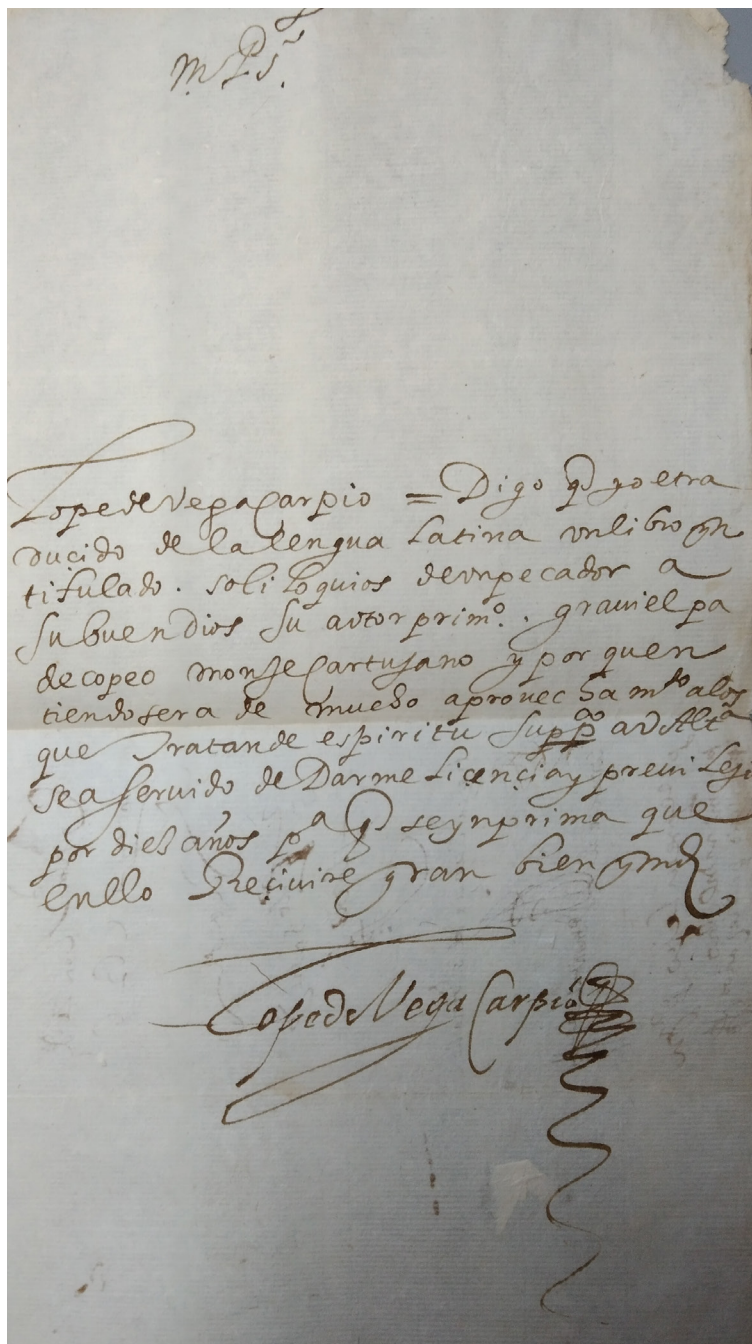 M. P. S.
Lope de Vega Carpio = Digo q yo e tra
duçido de la lengua Latina vn libro yn
titulado. soliloquios de vn pecador a
su buen Dios su avtor primo. graviel pa
decopeo monje Cartujano y por quen
tiendo sera de mucho aprouechamto a los
que Tratan de espiritu suppco a V Alta
sea seruido de Darme Liçençia y preuilegi
por diez años pa q se ynprima que
en ello Reçiuire gran bien y md
Lope de Vega Carpio